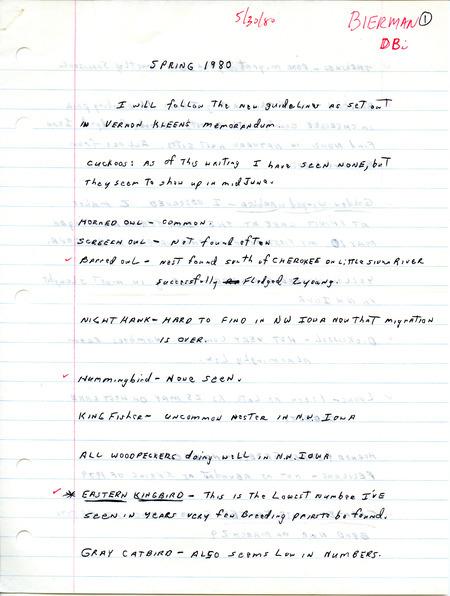 5/30/80
BIERMAN 1
DBi
SPRING 1980
I will follow The new guidelines as set out
IN VERNON KLEEN'S memorandum.
CUCKOOS: As of This writing I have seen NONE, but
They seem to show up in mid June.
HORNED OWL - COMMON.
SCREECH OWL - Not found often
Barred owl - nest found south of CHEROKEE on Little Sioux River
successfully Fledged 2 young.
NIGHT HAWK - HARD TO FIND IN NW IOWA NOW That migration
IS OVER.
Hummingbird - None seen.
KINGFisher - UNCOMMON NESTER IN N.W. IOWA
ALL WOODPECKERS doing well IN N.W. IOWA
* EASTERN KINGBIRD - This is The Lowest number I'VE
SEEN IN YEARS very few Breeding pairs to be found.
GRAY CATBIRD - ALSO seems Low in NUMBERS.